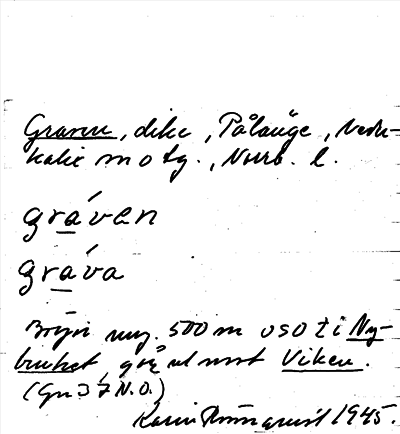 Graven, dike, Pålänge, Neder-
kalix m o tg., Norrb. l.
gráven
gráva
Börjar ung. 500 m oso t i Ny-
bruket, går ut mot Viken.
(Gn 3 7 N.O.)
Karin 1945.